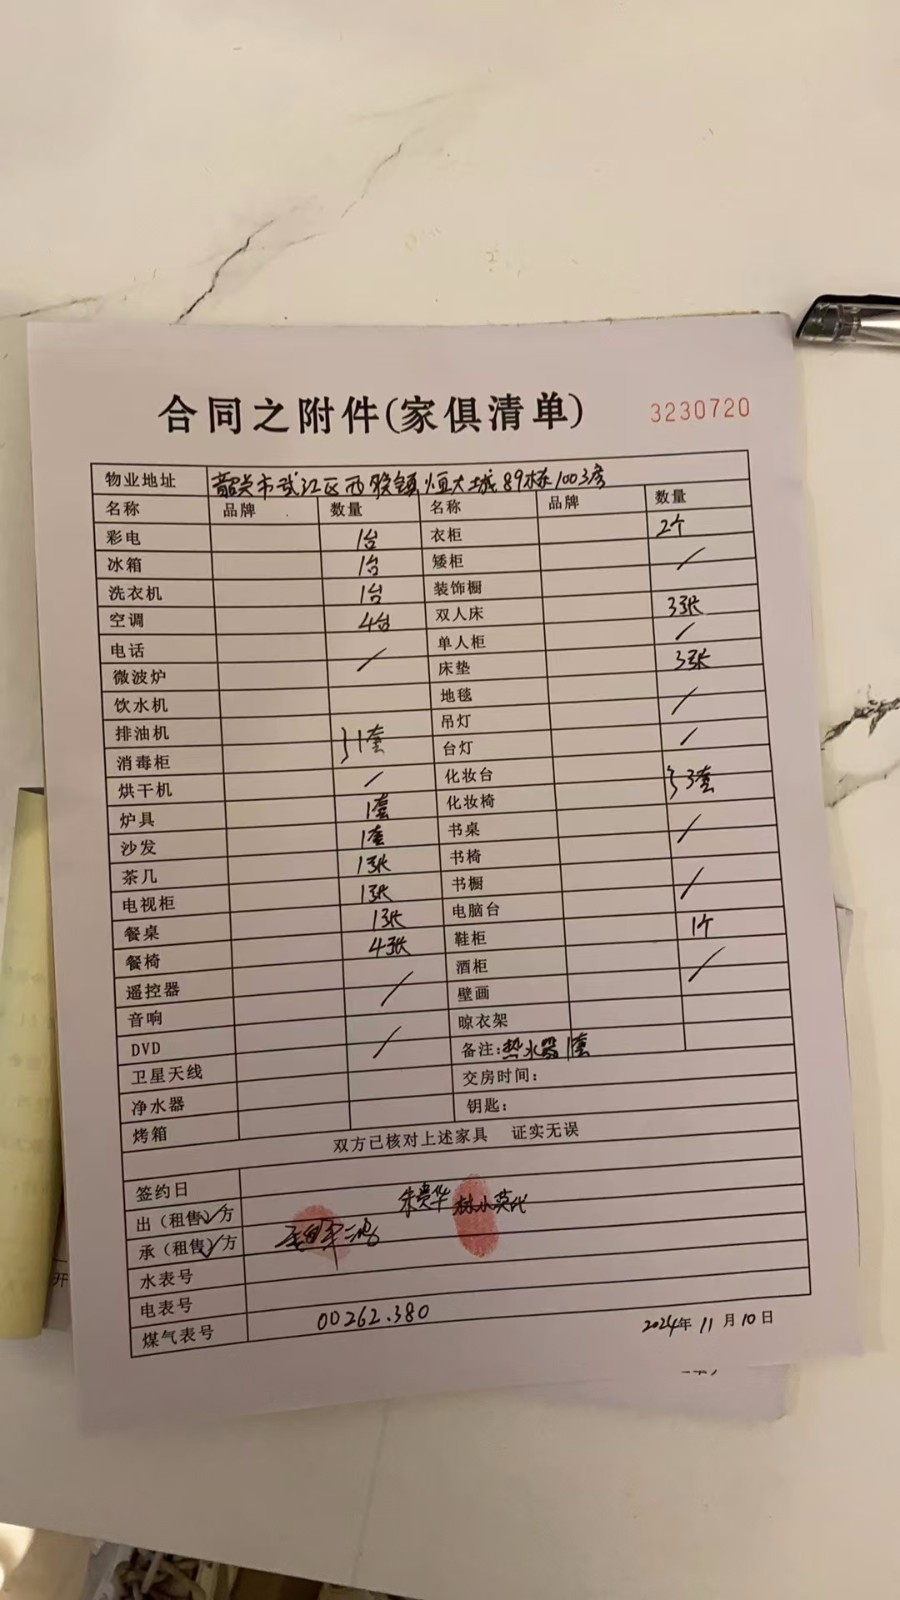 合同之附件(家俱清单) 3230720
物业地址 韶关市武江区西联镇恒大城89栋1003房
名称 品牌 数量 名称 品牌 数量
彩电 1台 衣柜 2个
冰箱 1台 矮柜 /
洗衣机 1台 装饰橱
空调 4台 双人床 3张
电话 单人柜 /
微波炉 / 床垫 3张
饮水机 地毯
排油机 } 1套 吊灯 /
消毒柜 台灯 /
烘干机 / 化妆台 } 3套
炉具 1套 化妆椅
沙发 1套 书桌 /
茶几 1张 书椅
电视柜 1张 书橱 /
餐桌 1张 电脑台
餐椅 4张 鞋柜 1个
遥控器 / 酒柜 /
音响 壁画
DVD / 晾衣架
卫星天线 备注:热水器1套
净水器 交房时间:
烤箱 钥匙:
双方已核对上述家具 证实无误
签约日
出(租售)方 朱贵华
承(租售)方
水表号
电表号
煤气表号 00262.380 2024年11月10日